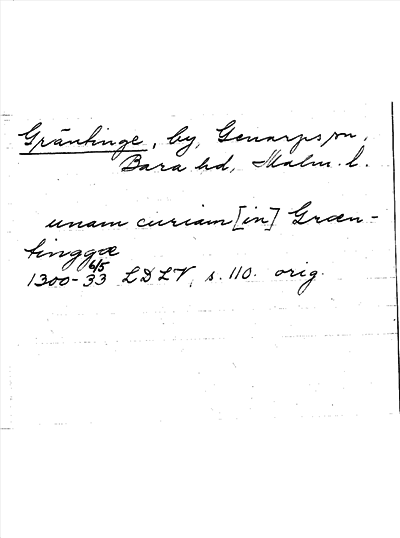 Gräntinge, by, Genarps sn,
Bara hd, Malm. l.
unam curiam [in] Græn-
tinggæ
6/5
1300-33 LDLV, s. 110. orig.